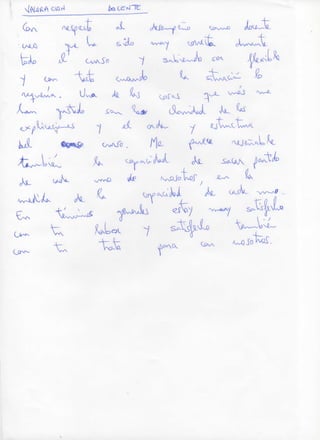 VALORACION DOCENTE
Con respecto al desempeño como docente
veo que ha sido muy correcta durante
todo el curso y sabiendo ser flexible
y con tacto cuando la situación lo
requería. Una de las cosas que más me
han gustado son la claridad de las
explicaciones y el orden y estructura
del curso. Me parece reseñable
también la capacidad de sacar partido
de cada uno de nosotros, en la
medida de la capacidad de cada uno.
En términos generales estoy muy satisfecho
con tu labor y satisfecho también
con tu trato para con nosotros.